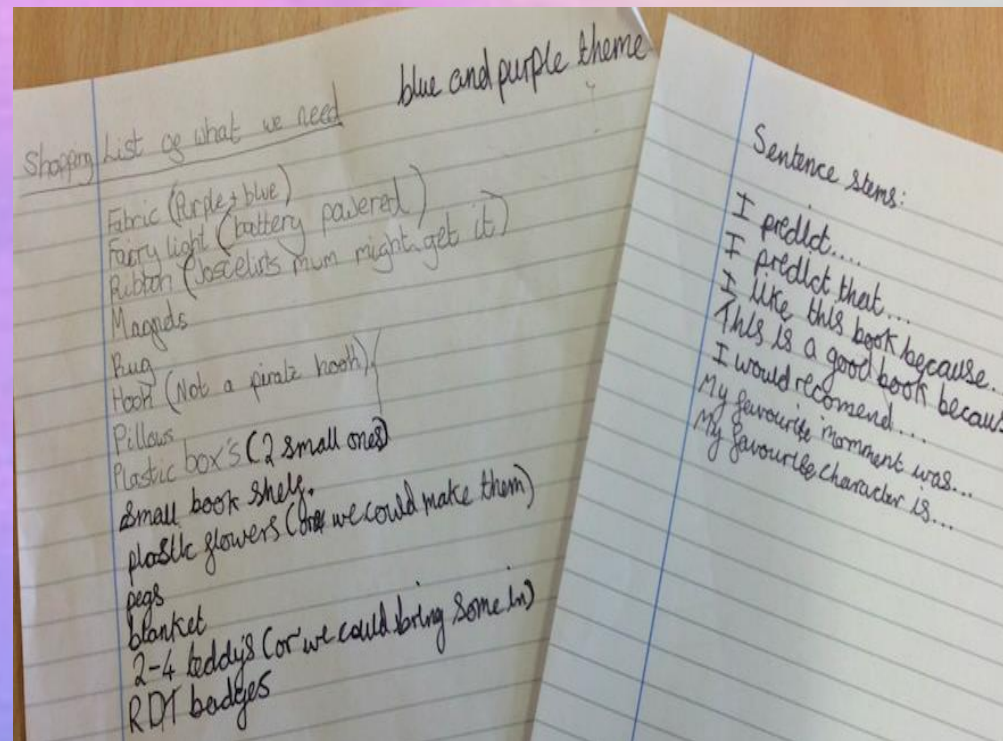 blue and purple theme
Shopping List of what we need
Fabric (Purple + blue)
Fairy light (battery powered)
Ribbon (Joscelins mum might get it)
Magnets
Rug
Hook (Not a pirate hook)
Pillows
Plastic box's (2 small ones)
Small book shelf.
plastic flowers (or we could make them)
pegs
blanket
2-4 teddy's (or we could bring some in)
RDT badges
Sentence stems:
I predict....
I predict that...
I like this book because...
This is a good book becaus
I would recomend...
My favourite momment was...
My favourite character is...